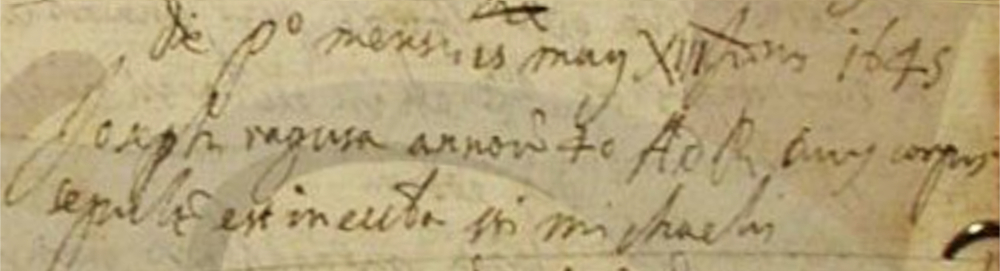 Die po mensis may XIII Inns 1645
Joseph ragusa annoru 40 A D R cuius corpus
sepultu est in ecctia sti michaelis